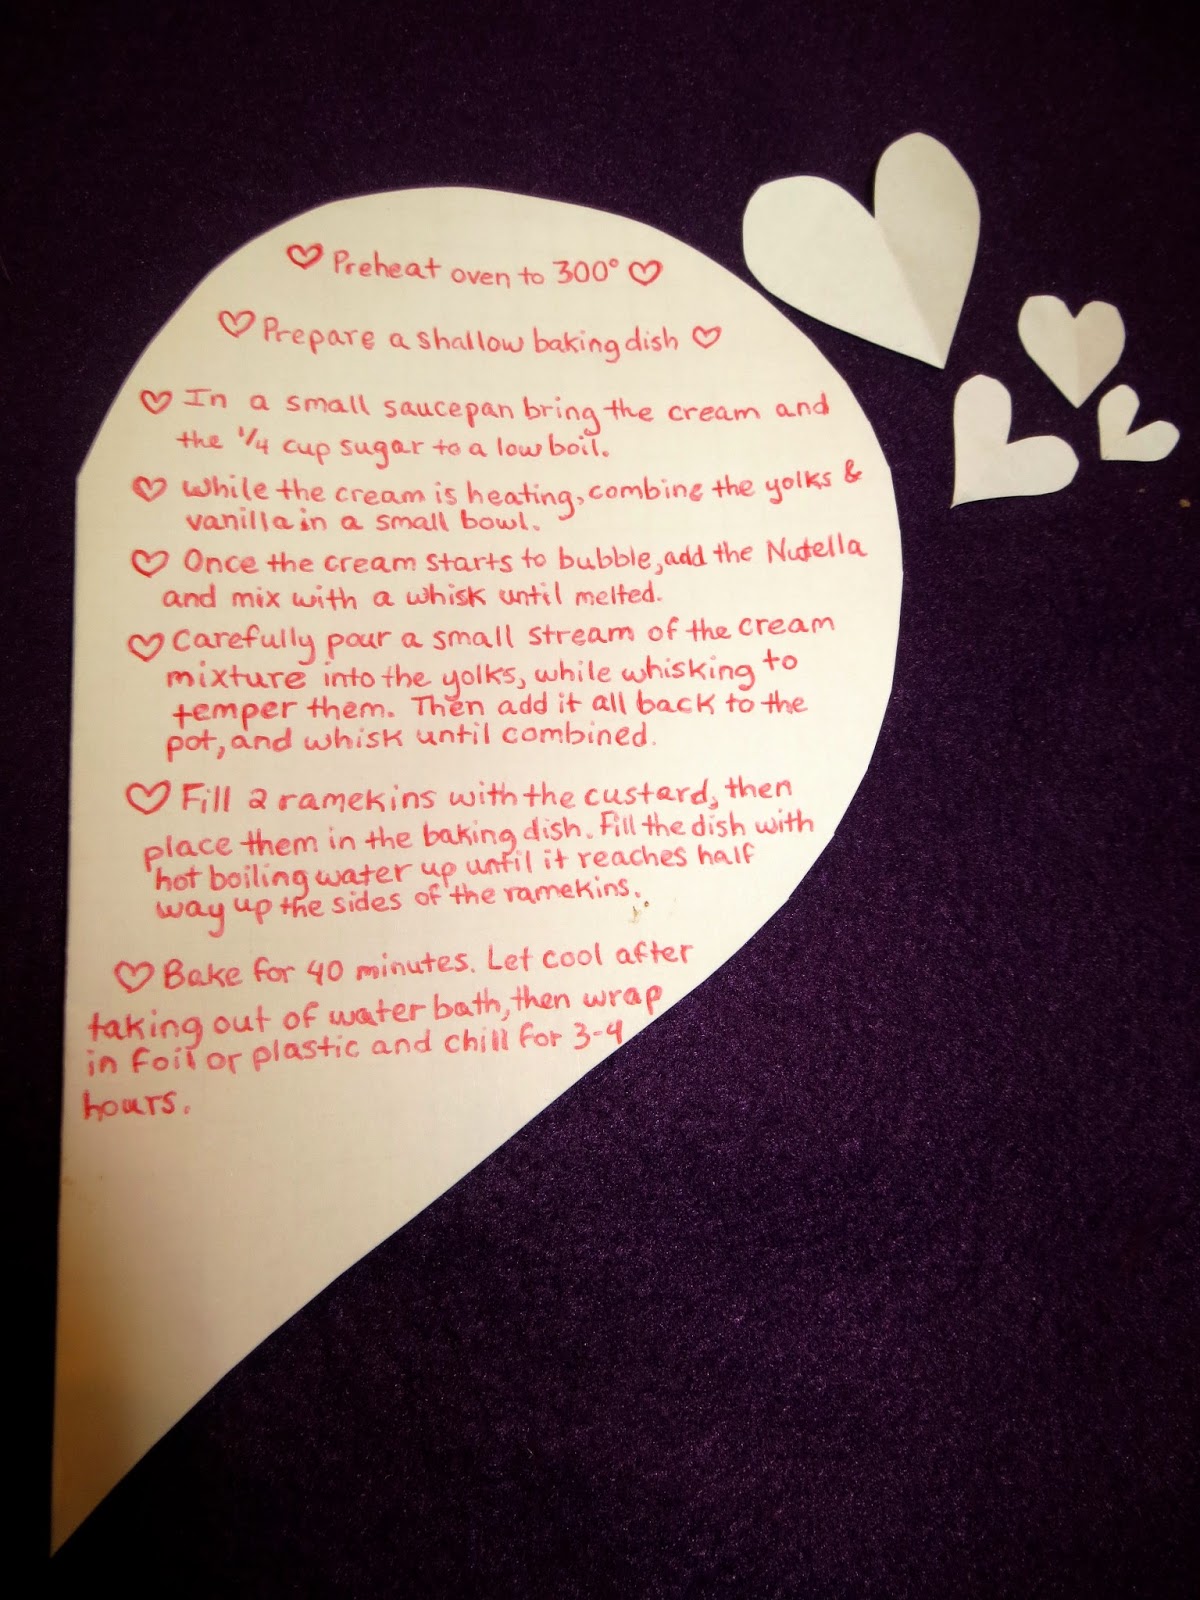 ♡ Preheat oven to 300° ♡
♡ Prepare a shallow baking dish ♡
♡ In a small saucepan bring the cream and
the 1/4 cup sugar to a low boil.
♡ While the cream is heating, combine the yolks &
vanilla in a small bowl.
♡ Once the cream starts to bubble, add the Nutella
and mix with a whisk until melted.
♡ Carefully pour a small stream of the cream
mixture into the yolks, while whisking to
temper them. Then add it all back to the
pot, and whisk until combined.
♡ Fill 2 ramekins with the custard, then
place them in the baking dish. Fill the dish with
hot boiling water up until it reaches half
way up the sides of the ramekins.
♡ Bake for 40 minutes. Let cool after
taking out of water bath, then wrap
in foil or plastic and chill for 3-4
hours.